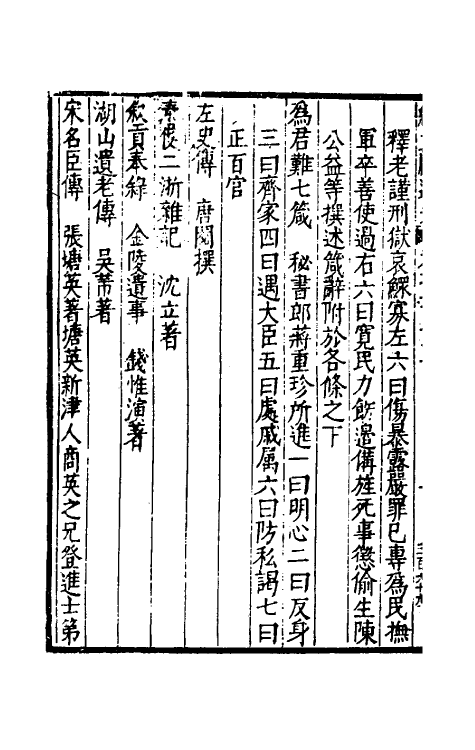 釋老謹刑獄哀鰥寡左六曰傷暴露嚴罪已專為民撫
軍卒善使過右六曰寬民力飭邉備旌死事懲偷生陳
公益等撰述箴辭附於各條之下
為君難七箴 秘書郎蔣重珍所進一曰明心二曰反身
三曰齊家四曰遇大臣五曰處戚属六曰防私謁七曰
正百官
左史傳 唐閱撰
二浙雜記 沈立著
欵貢奉錄 金陵遺事 錢惟演著
湖山遺老傳 吳芾著
宋名臣傳 張塘英著塘英新津人商英之兄登進士第